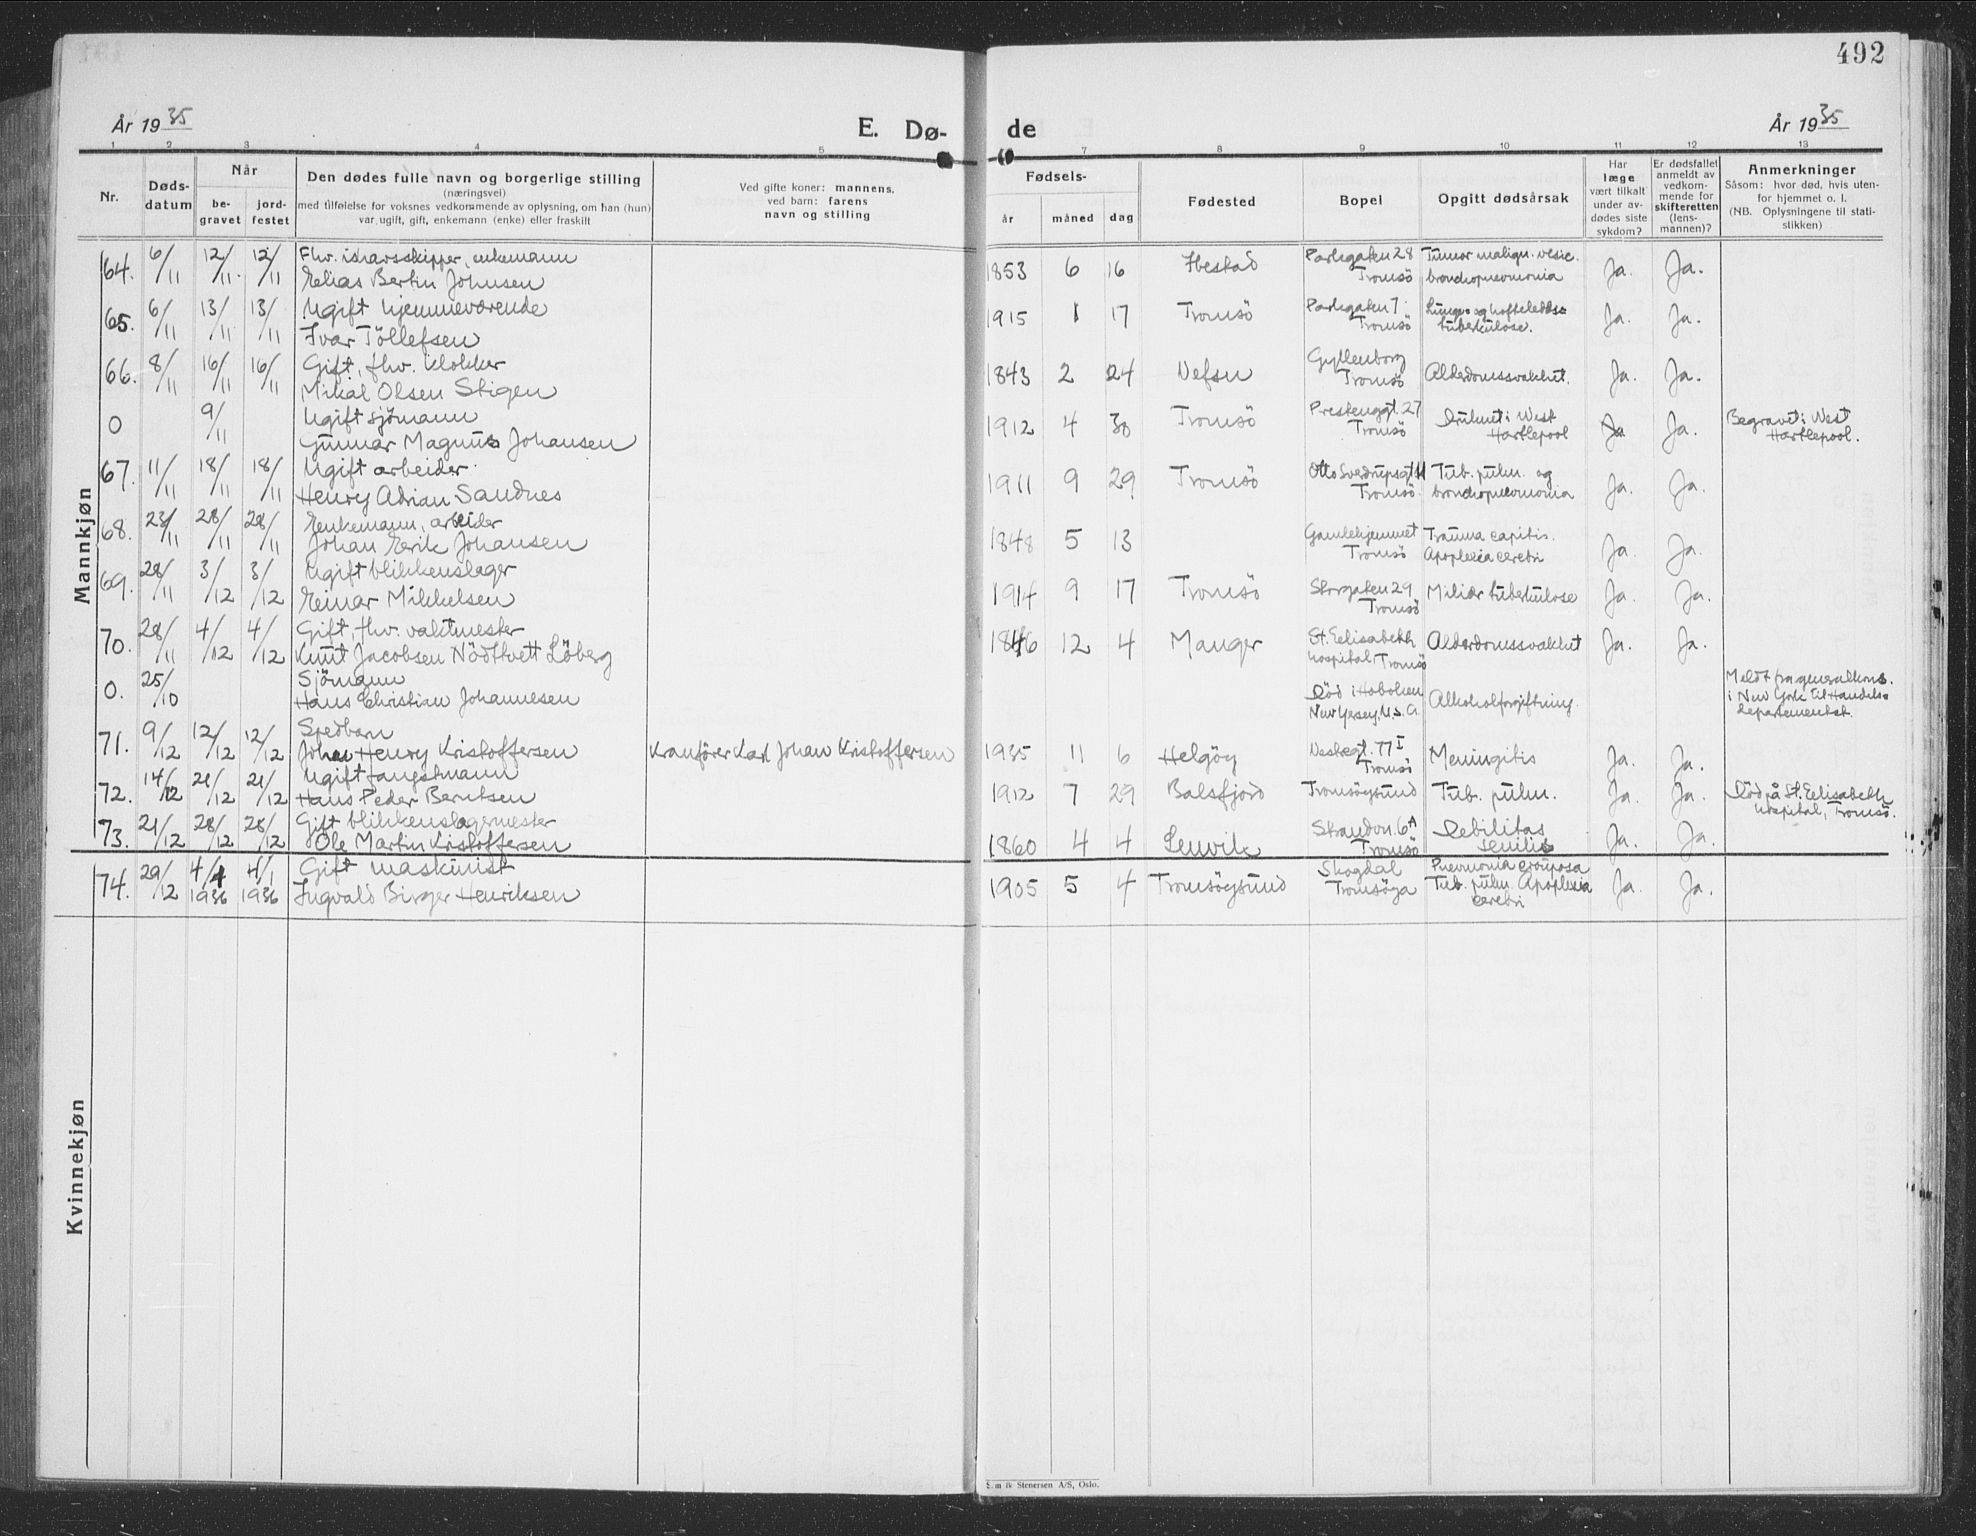 492
År 1935
E. Dø-
de
År 1935
1 2 3 4 5 7 8 9 10 11 12 13
Nr.
Døds-
datum
Når
be-
gravet
jord-
festet
Den dødes fulle navn og borgerlige stilling
(næringsvei)
med tilføielse for voksnes vedkommende av oplysning, om han (hun)
var ugift, gift, enkemann (enke) eller fraskilt
Ved gifte koner: mannens,
ved barn: farens
navn og stilling
Fødsels-
år måned dag
Fødested
Bopel
Opgitt dødsårsak
Har
læge
vært tilkalt
under av-
dødes siste
sykdom?
Er dødsfallet
anmeldt av
vedkom-
mende for
skifteretten
(lens-
mannen)?
Anmerkninger
Såsom: hvor død, hvis uten-
for hjemmet o. l.
(NB. Oplysningene til stati-
stikken)
Mannkjøn
64. 6/11 12/11 12/11 Fhv. ishavsskipper, enkemann
Elias Bertin Johnsen
1853 6 16 Ibestad Parkgaten 28
Tromsö
Tumor malign. vesic.
bronchopneomonia
Ja. Ja.
65. 6/11 13/11 13/11 Ugift hjemmeværende
Ivar Töllefsen
1915 1 17 Tromsö Parkgaten 7
Tromsö
Lunge og hofteledds-
tuberkulose.
Ja. Ja.
66. 8/11 16/11 16/11 Gift, fhv. klokker
Mikal Olsen Stigen
1843 2 24 Vefsn Gyllenborg
Tromsö
Alderdomssvakhet.
Ja. Ja.
0 9/11 Ugift sjömann
Gunnar Magnus Johansen
1912 4 30 Tromsö Prestenggt. 27
Tromsö
Druknet i West
Hartlepool
Ja Ja.
Begravet i West
Hartlepool.
67. 11/11 18/11 18/11 Ugift arbeider
Henry Adrian Sandnes
1911 9 29 Tromsö Otto Sverdrupsgt 11
Tromsö.
Tub. pulm. og
bronchopneomonia
Ja. Ja.
68. 23/11 28/11 28/11 Enkemann, arbeider
Johan Erik Johansen
1848 5 13 Gamlehjemmet
Tromsö
Trauma capitis.
Apoplexia cerebri
Ja. Ja.
69. 28/11 3/12 3/12 Ugift blikkenslager
Einar Mikkelsen
1914 9 17 Tromsö Storgaten 29
Tromsö
Miliær tuberkulose
Ja. Ja.
70. 28/11 4/12 4/12 Gift, fhv. vaktmester
Knut Jacobsen Nödtvett Löberg
1846 12 4 Manger St. Elisabeth
hospital, Tromsö
Alderdomssvakhet
Ja. Ja.
0. 25/10 Sjömann
Hans Christian Johannesen
Död i Hoboken
New Yersey, U.S.A.
Alkoholforgiftning.
Meldt fra generalkons.
i New York til Handels-
departementet.
71. 9/12 12/12 12/12 Spedbarn
Johan Henry Kristoffersen
Kranförer Karl Johan Kristoffersen
1935 11 6 Helgöy Vestregt. 77 I
Tromsö
Meningitis
Ja. Ja.
72. 14/12 21/12 21/12 Ugift fangstmann
Hans Peder Berntsen
1912 7 29 Balsfjord Tromsöysund Tub. pulm.
Ja. Ja.
Död på St. Elisabeth
hospital, Tromsö.
73. 21/12 28/12 28/12 Gift blikkenslagermester
Ole Martin Kristoffersen
1860 4 4 Lenvik Strandvn. 6A
Tromsö
Debilitas
senilis
Ja. Ja.
74. 29/12 4/1 1936 4/1 1936 Gift maskinist
Ingvald Birger Henriksen
1905 5 4 Tromsöysund Skogdal
Tromsöya
Pneumonia crouposa
Tub. pulm. Apoplexia
cerebri
Ja. Ja.
Kvinnekjøn
& Stenersen A/S, Oslo.